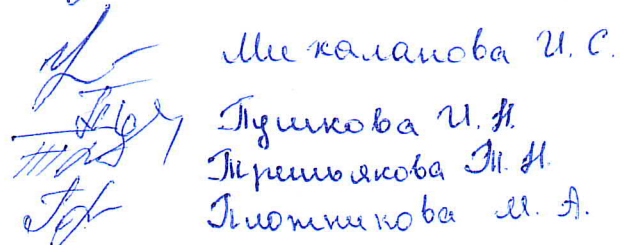 Михаланова И. С.
Пушкова И. Н.
Третьякова Т. Н.
Плотникова М. А.